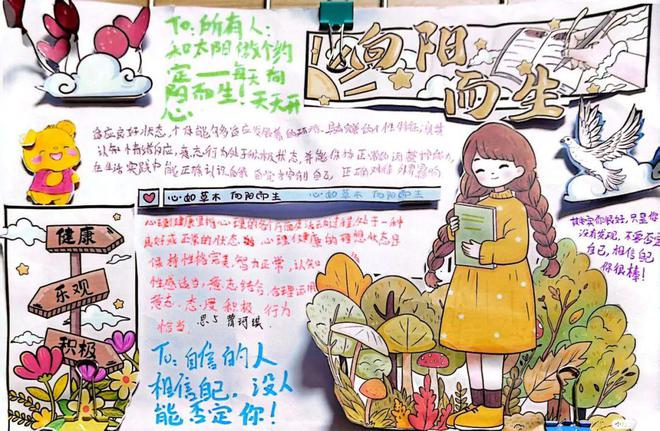 To:所有人:
和太阳做个约
定——每天向
阳而生!天天开
心
向阳
而生
心如草木 向阳而生
心如草木 向阳而生
健康
乐观
积极
适应良好状态,个体能够适应发展着的环境,
认知、情绪反应、意志行为处于积极状态,并能保持正常的调整能力,
在生活实践中,能正确认识自我,自觉控制自己,正确对待外界影响
心理健康是指心理的各个方面及活动过程处于一种
良好或正常的状态。心理健康的理想状态是
保持性格完美、智力正常、认知
性感适当、意志结合、合理运用
意志、态度积极、行为
恰当
其实你很好,只是你
没有发现,不要否定
自己,相信自己
你很棒!
To:自信的人
相信自己,没人
能否定你!